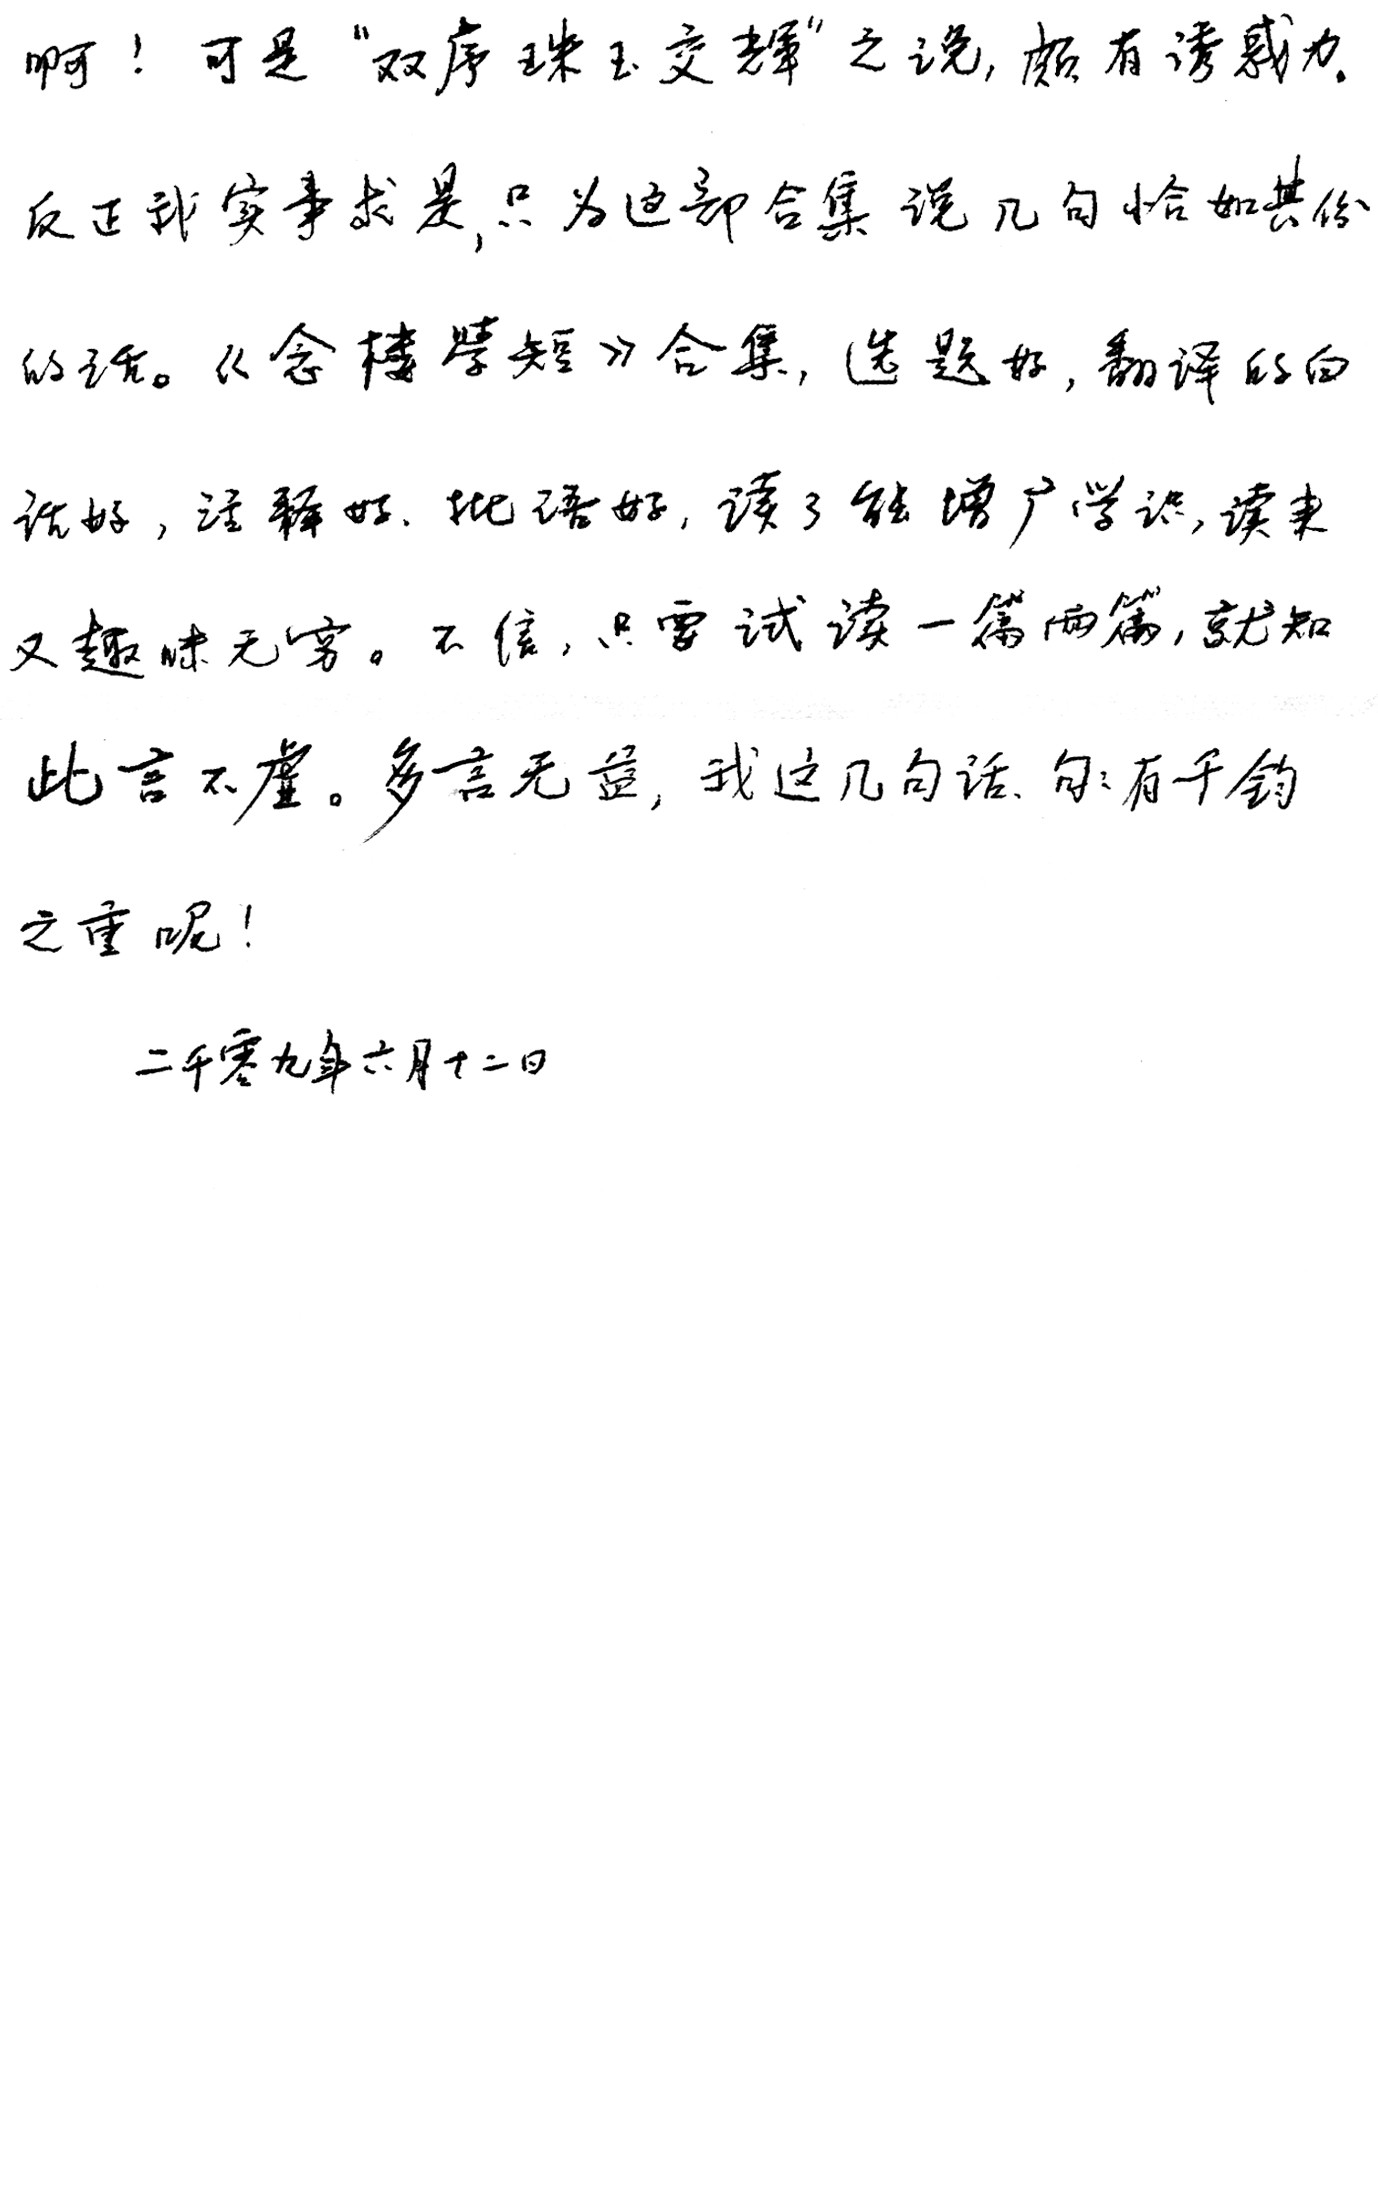 啊！可是“双序珠玉交辉”之说，颇有诱惑力。
反正我实事求是，只为这部合集说几句恰如其份
的话。《念楼学短》合集，选题好，翻译的白
话好，注释好、批语好，读了能增广学识，读来
又趣味无穷。不信，只要试读一篇两篇，就知
此言不虚。多言无益，我这几句话、句々有千钧
之重呢！
二千零九年六月十二日